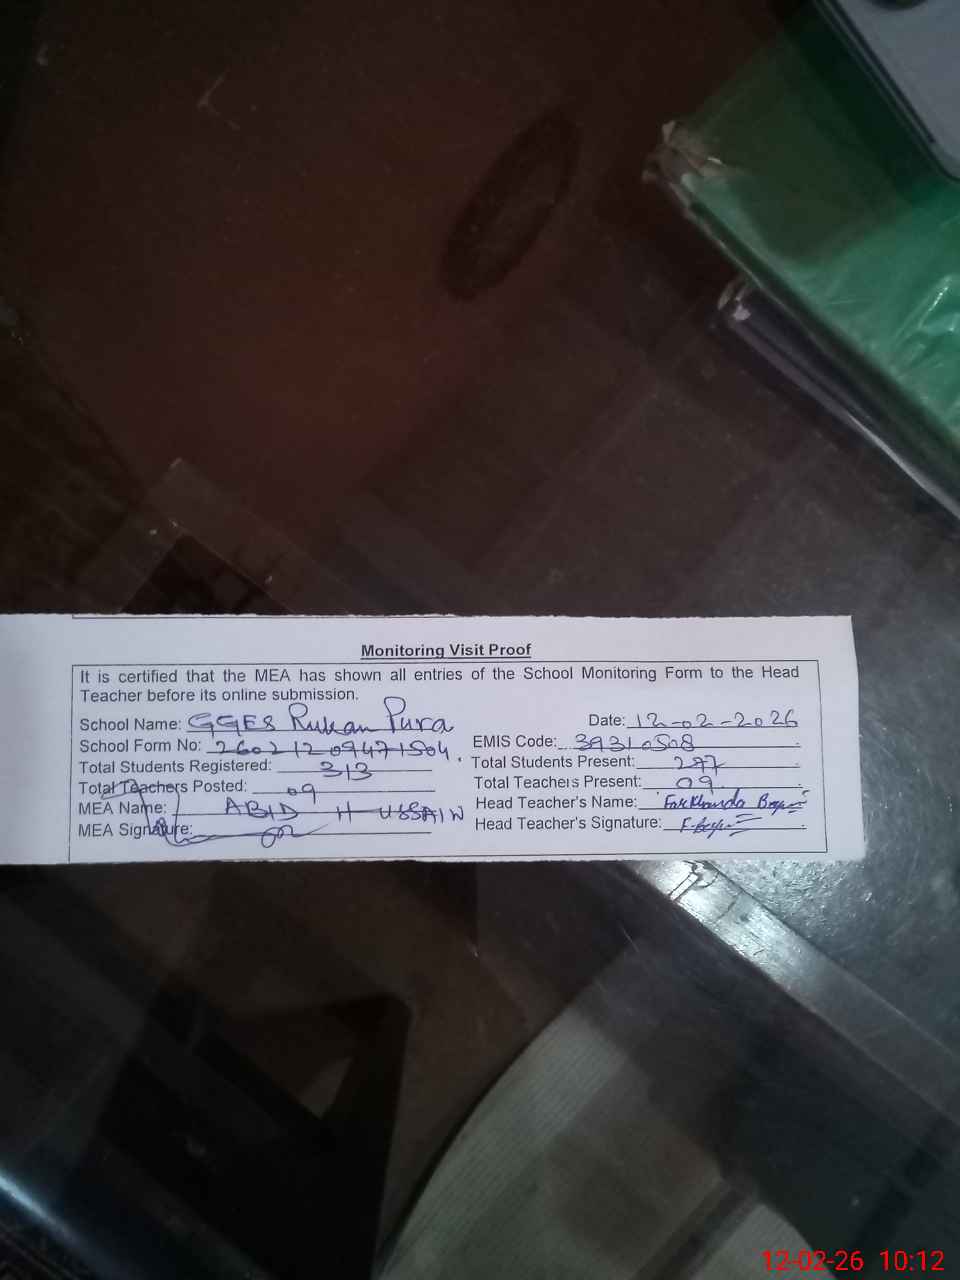 Monitoring Visit Proof
It is certified that the MEA has shown all entries of the School Monitoring Form to the Head
Teacher before its online submission.
School Name: GGES Rukan Pura Date: 12-02-2026
School Form No: 26021209471504. EMIS Code: 39310508
Total Students Registered: 313 Total Students Present: 297
Total Teachers Posted: 09 Total Teachers Present: 09
MEA Name: ABID HUSSAIN Head Teacher's Name: Farkhanda
MEA Signature: Head Teacher's Signature:
12-02-26 10:12